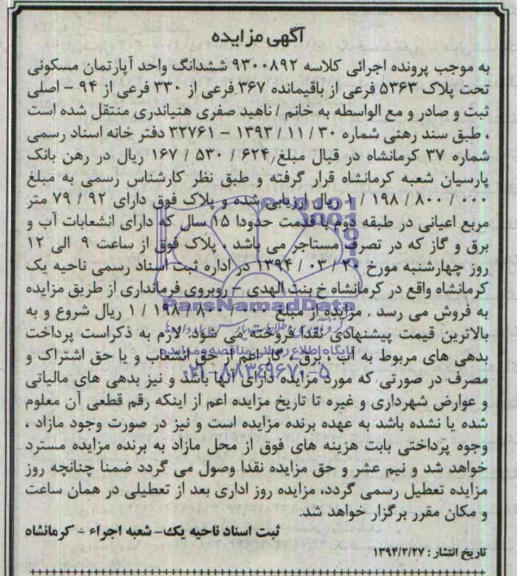 آگهی مزایده
به موجب پرونده اجرائی کلاسه ۹۳۰۰۸۹۲ ششدانگ واحد آپارتمان مسکونی
تحت پلاک ۵۳۶۳ فرعی از باقیمانده ۳۶۷ فرعی از ۳۳۰ فرعی از ۹۴ - اصلی
ثبت و صادر و مع الواسطه به خانم / ناهید صفری هنیاندری منتقل شده است
، طبق سند رهنی شماره ۳۰ / ۱۱ / ۱۳۹۳ - ۳۲۷۶۱ دفتر خانه اسناد رسمی
شماره ۳۷ کرمانشاه در قبال مبلغ ۶۲۴٫ / ۵۳۰ / ۱۶۷ ریال در رهن بانک
پارسیان شعبه کرمانشاه قرار گرفته و طبق نظر کارشناس رسمی به مبلغ
۰۰۰ / ۸۰۰ / ۱۹۸ / ۱ ریال ارزیابی شده و پلاک فوق دارای ۹۲ / ۷۹ متر
مربع اعیانی در طبقه دوم با قدمت حدودا ۱۵ سال که دارای انشعابات آب و
برق و گاز که در تصرف مستاجر می باشد . پلاک فوق از ساعت ۹ الی ۱۲
روز چهارشنبه مورخ ۲۰ / ۰۳ / ۱۳۹۴ در اداره ثبت اسناد رسمی ناحیه یک
کرمانشاه واقع در کرمانشاه خ بنت الهدی - روبروی فرمانداری از طریق مزایده
به فروش می رسد . مزایده از مبلغ ۰۰۰ / ۸۰۰ / ۱۹۸ / ۱ ریال شروع و به
بالاترین قیمت پیشنهادی نقدا فروخته می شود. لازم به ذکراست پرداخت
بدهی های مربوط به آب ، برق ، گاز اعم از حق انشعاب و یا حق اشتراک و
مصرف در صورتی که مورد مزایده دارای آنها باشد و نیز بدهی های مالیاتی
و عوارض شهرداری و غیره تا تاریخ مزایده اعم از اینکه رقم قطعی آن معلوم
شده یا نشده باشد به عهده برنده مزایده است و نیز در صورت وجود مازاد ،
وجوه پرداختی بابت هزینه های فوق از محل مازاد به برنده مزایده مسترد
خواهد شد و نیم عشر و حق مزایده نقدا وصول می گردد ضمنا چنانچه روز
مزایده تعطیل رسمی گردد، مزایده روز اداری بعد از تعطیلی در همان ساعت
و مکان مقرر برگزار خواهد شد.
ثبت اسناد ناحیه یک- شعبه اجراء - کرمانشاه
تاریخ انتشار : ۱۳۹۴/۲/۲۷
ParsNamadData
پایگاه اطلاع رسانی مناقصه و مزایده
۰۲۱-۸۸۳۴۹۶۷۰-۵